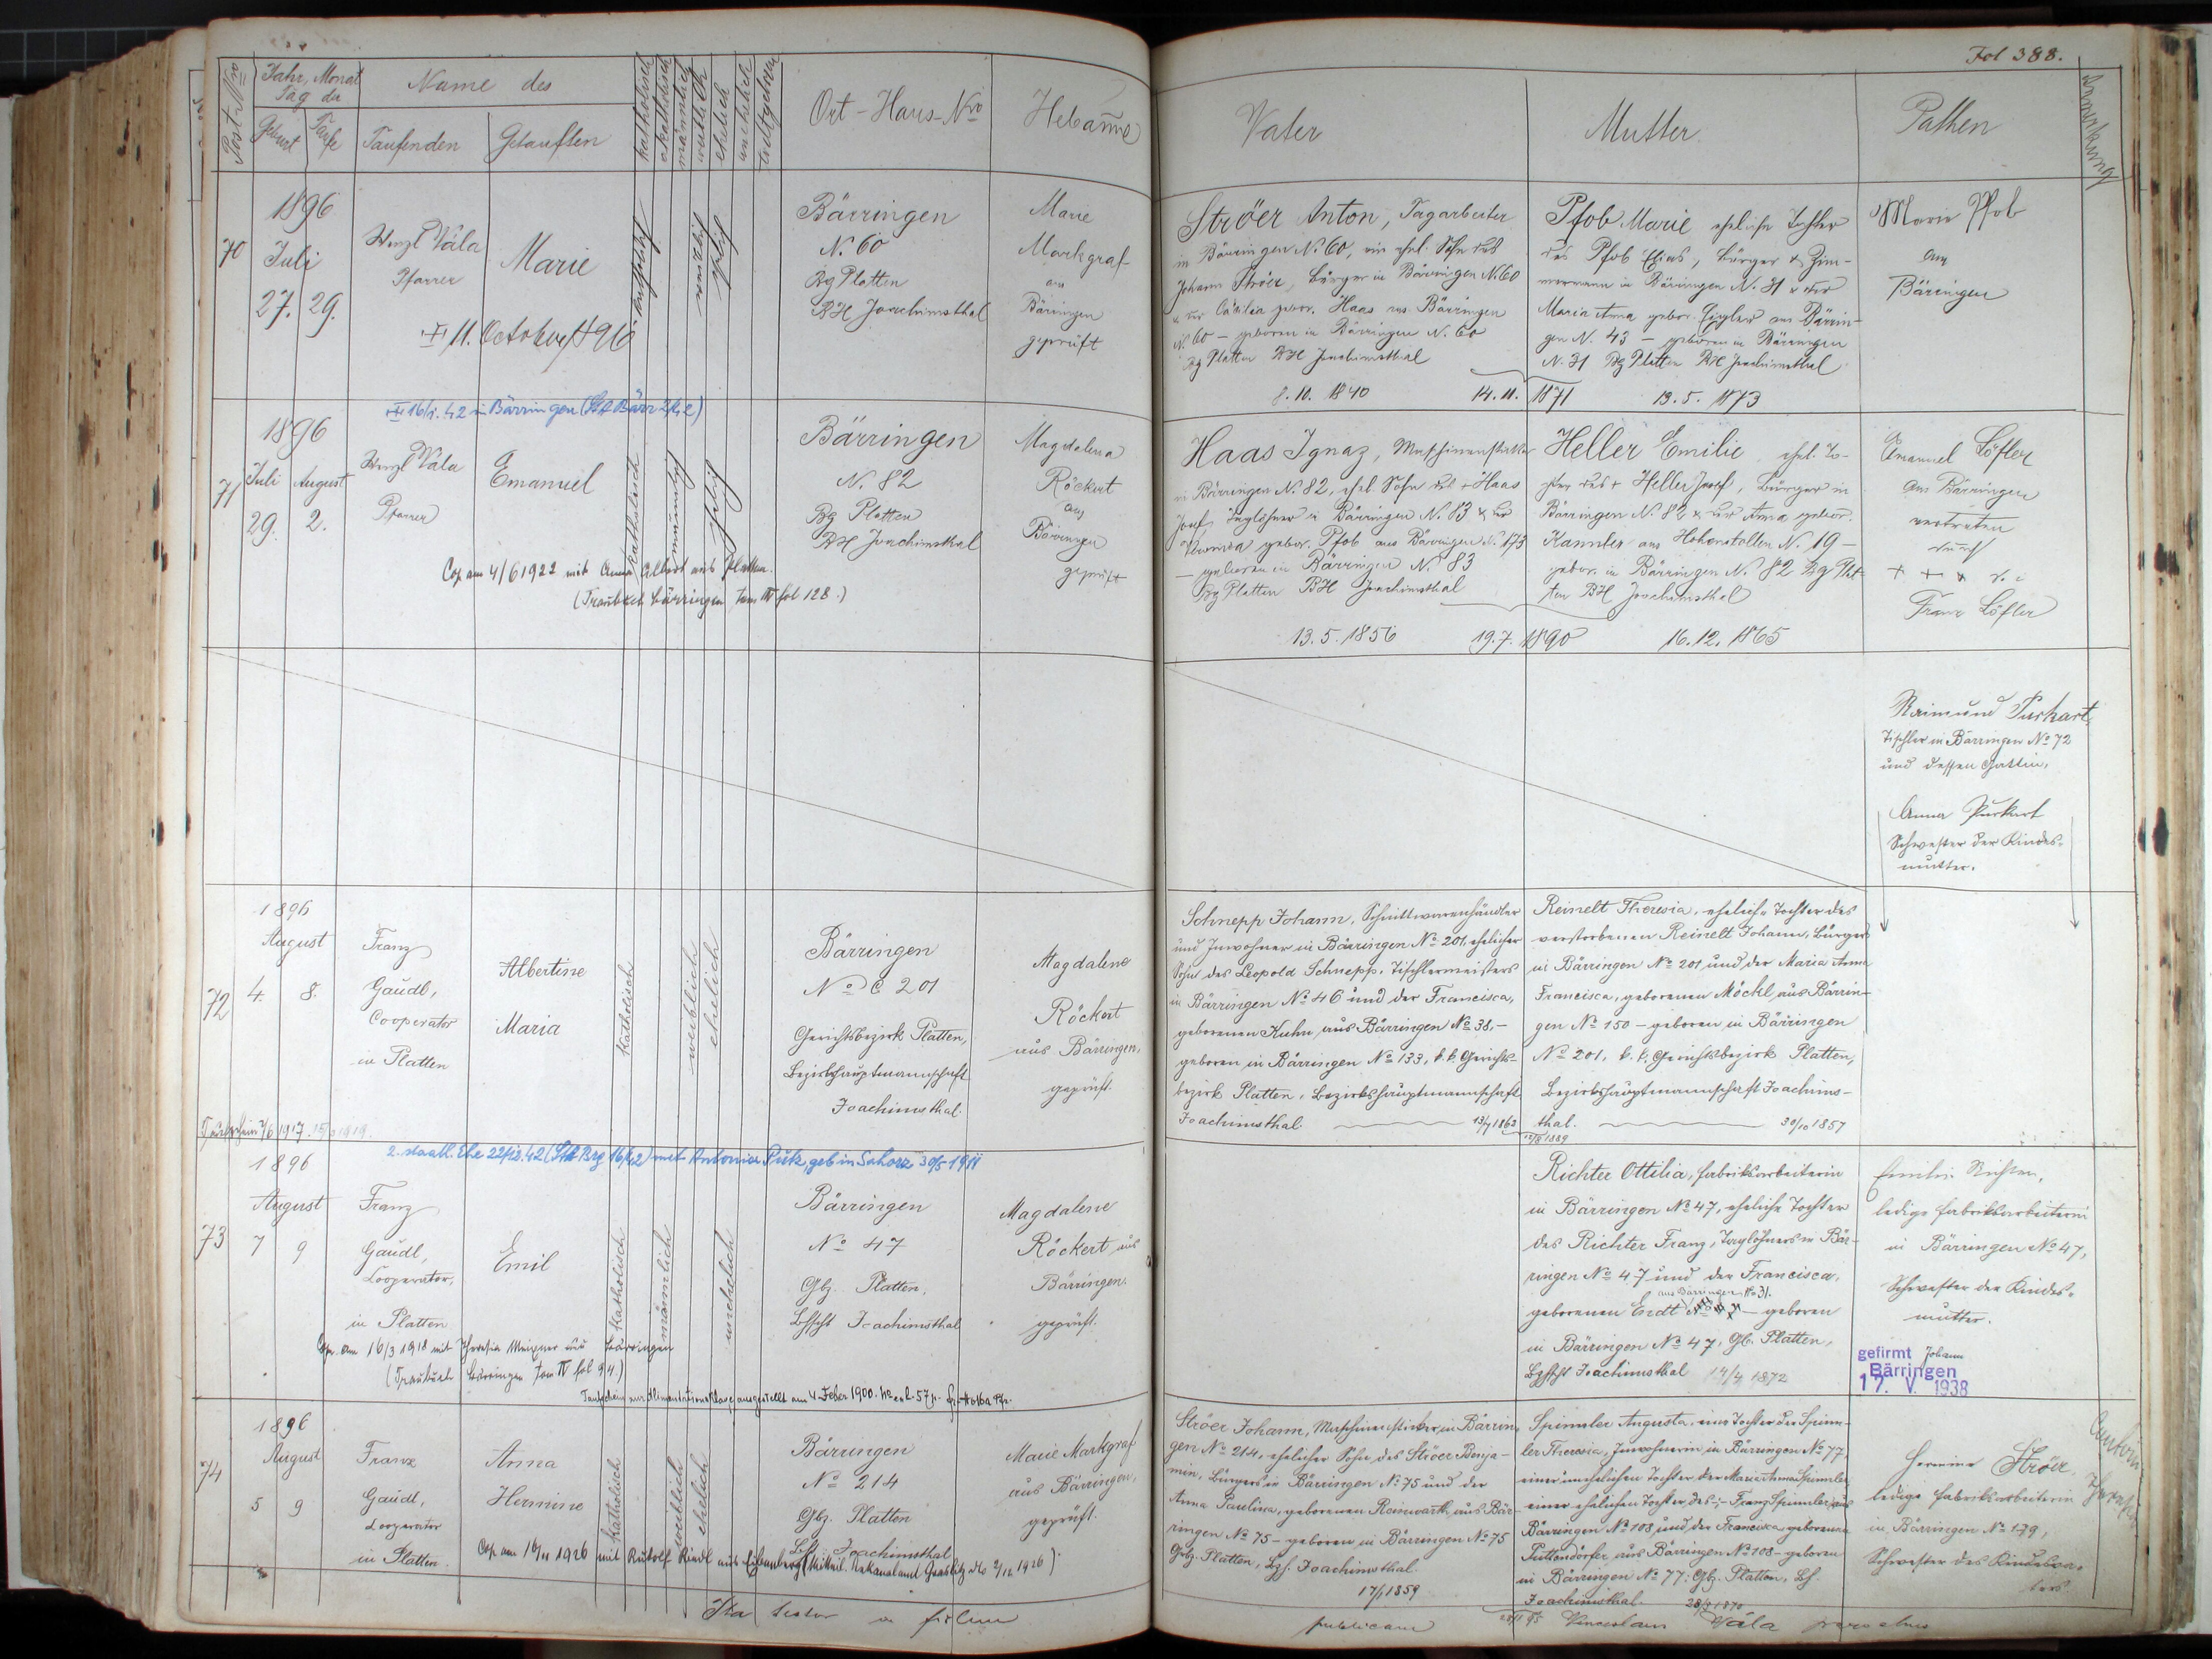 Fol 388.
Post-Nro
Jahr, Monat
Tag der
Geburt
Taufe
Name des
Taufenden
Getauften
katholisch
akatholisch
männlich
weiblich
ehelich
unehelich
todtgeboren
Ort-Haus-Nro
Hebamme
Vater
Mutter
Pathen
Anmerkung
70
1896
Juli
27. 29.
Wenzl Vála
Pfarrer
Marie
11. October 1896
katholisch
weiblich
ehelich
Bärringen
N. 60
Bg Platten
BH Joachimsthal
Marie
Markgraf
aus
Bäringen
geprüft
Ströer Anton, Tagarbeiter
in Bärringen No 60, ein ehel. Sohn des
Johann Ströer, Bürger in Bärringen N. 60
u. der Cäcilia gebor. Haas aus Bärringen
N. 60 – geboren in Bärringen N. 60
Bg Platten BH Joachimsthal
8. 10. 1840
14. 11. 1871
Pfob Marie eheliche Tochter
des Pfob Elias, Bürger & Zim-
mermann in Bäringen N. 31 u der
Maria Anna gebor. Zigler aus Bärrin-
gen N. 43 – geboren in Bäringen
N. 31 Bg Platten BH Joachimsthal
13. 5. 1873
Marie Pfob
aus
Bäringen
16/1. 42 in Bärringen (StA Bärr 2/42)
71
1896
Juli August
29. 2.
Wenzl Vála
Pfarrer
Emanuel
katholisch
männlich
ehelich
Bärringen
N. 82
Bg Platten
BH Joachimsthal
Magdalena
Röckert
aus
Bärringen
geprüft
Cop. am 4/6 1922 mit Anna Albert aus Platten.
(Traubuch Bärringen tom IV fol 128.)
Haas Ignaz, Maschinensticker
in Bärringen No 82, ehel. Sohn des + Haas
Josef, Taglöhner in Bärringen N. 83 u der
Veronica gebor. Pfob aus Bärringen N. 173
– geboren in Bärringen N. 83
Bg Platten BH Joachimsthal
13. 5. 1856
19. 7. 1890
Heller Emilie ehel. To-
chter des + Heller Josef, Bürger in
Bärringen N. 82 & der Anna gebor.
Kannler aus Hohenstollen N. 19 –
gebor. in Bärringen N. 82 Bg Plat-
ten BH Joachimsthal
16. 12. 1865
Emanuel Löfler
aus Bärringen
vertreten
durch
+ + +
Franz Löfler
Raimund Purkart,
Tischler in Bärringen No 72
und dessen Gattin,
Anna Purkart
Schwester der Kindes-
mutter.
72
1896
August
4. 8.
Franz
Gaudl,
Cooperator
in Platten
Albertine
Maria
katholisch
weiblich
ehelich
Bärringen
No C 201
Gerichtsbezirk Platten,
Bezirkshauptmannschaft
Joachimsthal.
Magdalene
Röckert
aus Bärringen,
geprüft.
Schnepp Johann, Schnittwarenhändler
und Inwohner in Bärringen No 201, ehelicher
Sohn des Leopold Schnepp, Tischlermeisters
in Bärringen No 46 und der Francisca,
geborenen Kuhn, aus Bärringen No 38, –
geboren in Bärringen No 133, k. k. Gerichts-
bezirk Platten, Bezirkshauptmannschaft
Joachimsthal
13/7 1862
Reinelt Theresia, eheliche Tochter des
verstorbenen Reinelt Johann, Bürgers
in Bärringen No 201 und der Maria Anna
Francisca, geborenen Möckl, aus Bärrin-
gen No 150 – geboren in Bärringen
No 201, k. k. Gerichtsbezirk Platten,
Bezirkshauptmannschaft Joachims-
thal.
30/10 1857
1889
2. staatl. Ehe 22/12. 42 (StA Brg 16/42) mit Antonia Putz, geb in Sahorz 30/5 1911
73
1896
August
7 9
Franz
Gaudl,
Cooperator,
in Platten
Emil
katholisch
männlich
unehelich
Bärringen
No 47
Gbz. Platten,
Joachimsthal
Magdalene
Röckert aus
Bärringen.
geprüft.
Cop. am 16/3 1918 mit Theresia Meixner aus Bärringen
(Traubuch Bärringen tom IV fol 94.)
Richter Ottilia, Fabriksarbeiterin
in Bärringen No 47, eheliche Tochter
des Richter Franz, Taglöhners in Bär-
ringen No 47 und der Francisca,
aus Bärringen No 31.
geborenen Endt – geboren
in Bärringen No 47, Gb. Platten,
Joachimsthal 14/4 1872
Emilie Richter,
ledige Fabriksarbeiterin
in Bärringen No 47,
Schwester der Kindes-
mutter.
gefirmt Johann
Bärringen
17. V. 1938
Taufschein zur Alimentationsklage ausgestellt am 4. Feber 1900.
74
1896
August
5 9
Franz
Gaudl,
Cooperator
in Platten.
Anna
Hermine
katholisch
weiblich
ehelich
Bärringen
No 214
Gbz. Platten
Joachimsthal
Marie Markgraf
aus Bärringen,
geprüft.
Cop. am 16/11 1926 mit Rudolf Riedl aus Eibenberg (Mitteil. Dekanalamt Graslitz 2/12 1926)
Ströer Johann, Maschinensticker in Bärrin-
gen No 214, ehelicher Sohn des Ströer Benja-
min, Bürgers in Bärringen No 75 und der
Anna Paulina, geborenen Reinwarth aus Bär-
ringen No 75 – geboren in Bärringen No 75
Gbz. Platten, Bzh. Joachimsthal.
17/1 1859
Spinnler Augusta, eine Tochter der Spinn-
ler Theresia, Inwohnerin in Bärringen No 77,
einer unehelichen Tochter der Maria Anna Spinnler
einer ehelichen Tochter des Franz Spinnler, aus
Bärringen No 108 und der Francisca, geborenen
Tuttendörfer aus Bärringen No 108 – geboren
in Bärringen No 77, Gbz. Platten, Bh.
Joachimsthal. 28/3 1870
Hermine Ströer,
ledige Fabriksarbeiterin
in Bärringen No 179,
Schwester des Kindesva-
ters
Ita testor in fidem
publicam
Venceslaus Vála parochus